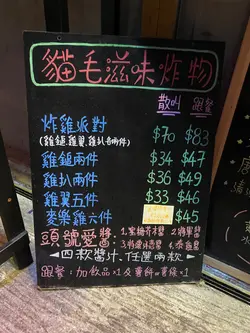 貓毛滋味炸物
散叫 跟餐
炸雞派對 $70 $83
(雞鎚,雞翼,雞扒各兩件)
雞鎚兩件 $34 $47
雞扒兩件 $36 $49
雞翼五件 $33 $46
麥樂雞六件 $45
頭號愛醬: 1.蜜糖芥末 2.將軍醬
4.泰雞
四款醬汁, 任選兩款
跟餐: 加飲品×1 及薯餅or薯條×1